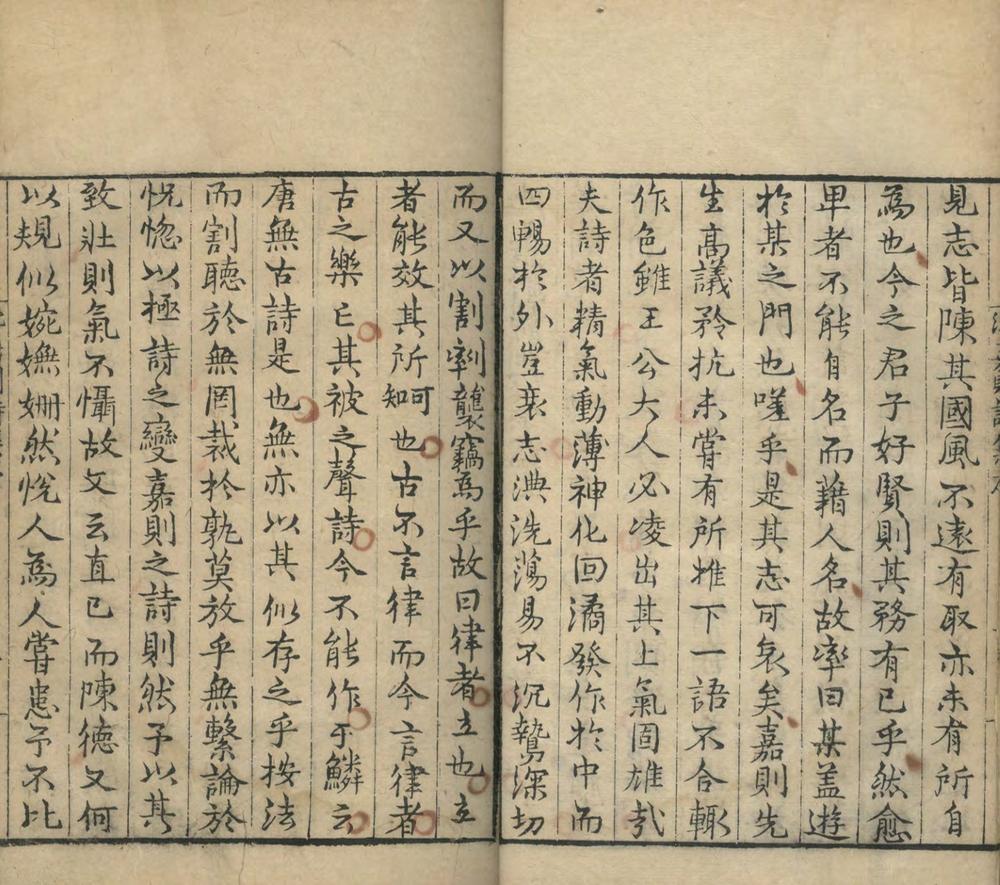 見志皆陳其國風不遠有取亦未有所自
為也今之君子好賢則其務有已乎然愈
卑者不能自名而藉人名故率曰某盖遊
於某之門也嗟乎是其志可哀矣嘉則先
生高議矜抗未嘗有所推下一語不合輙
作色雖王公大人必凌出其上氣固雄㢤
夫詩者精氣動薄神化回潏發作於中而
四暢於外豈衰志淟洗蕩易不沉鷙深切
而又以割剥襲竊焉乎故曰律者立也立
者能效其所可知也古不言律而今言律者
古之樂亡其被之聲詩今不能作于鱗云
唐無古詩是也無亦以其似存之乎按法
而割聽於無罔裁於孰莫放乎無繫論於
怳惚以極詩之變嘉則之詩則然予以其
致壯則氣不懾故文云直已而陳德又何
以規似婉嫵姍然悅人為人嘗患予不比